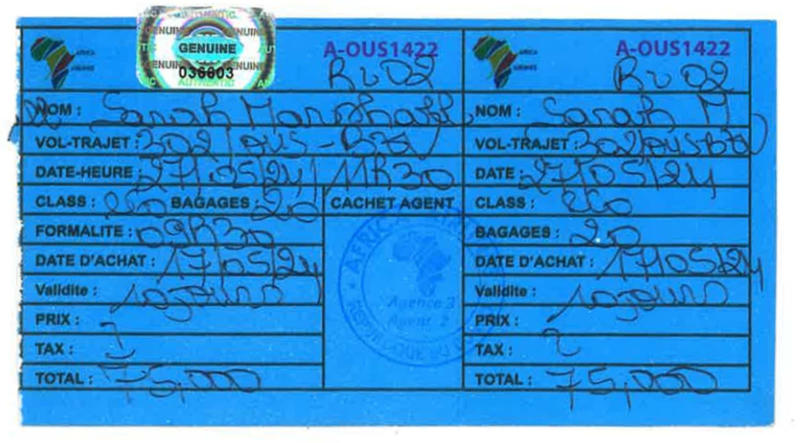 GENUINE
036603
AUTHENTIC
AFRICA
AIRLINES
A-OUS1422
RV02
NOM : Sarah
VOL-TRAJET : 302/OUS-BZV
DATE-HEURE : 27/05/24 11H30
CLASS : eco BAGAGES : 20 CACHET AGENT
FORMALITE : 09H30
DATE D'ACHAT : 17/05/24
Validite : 10 jours
PRIX :
TAX :
TOTAL : 75,000
Agence 3
Agent 2
REPUBLIQUE DU
AFRICA
AIRLINES
A-OUS1422
RV02
NOM : Sarah M
VOL-TRAJET : 302/OUSBZV
DATE : 27/05/24
CLASS : eco
BAGAGES : 20
DATE D'ACHAT : 17/05/24
Validite : 10 jours
PRIX :
TAX :
TOTAL : 75,000